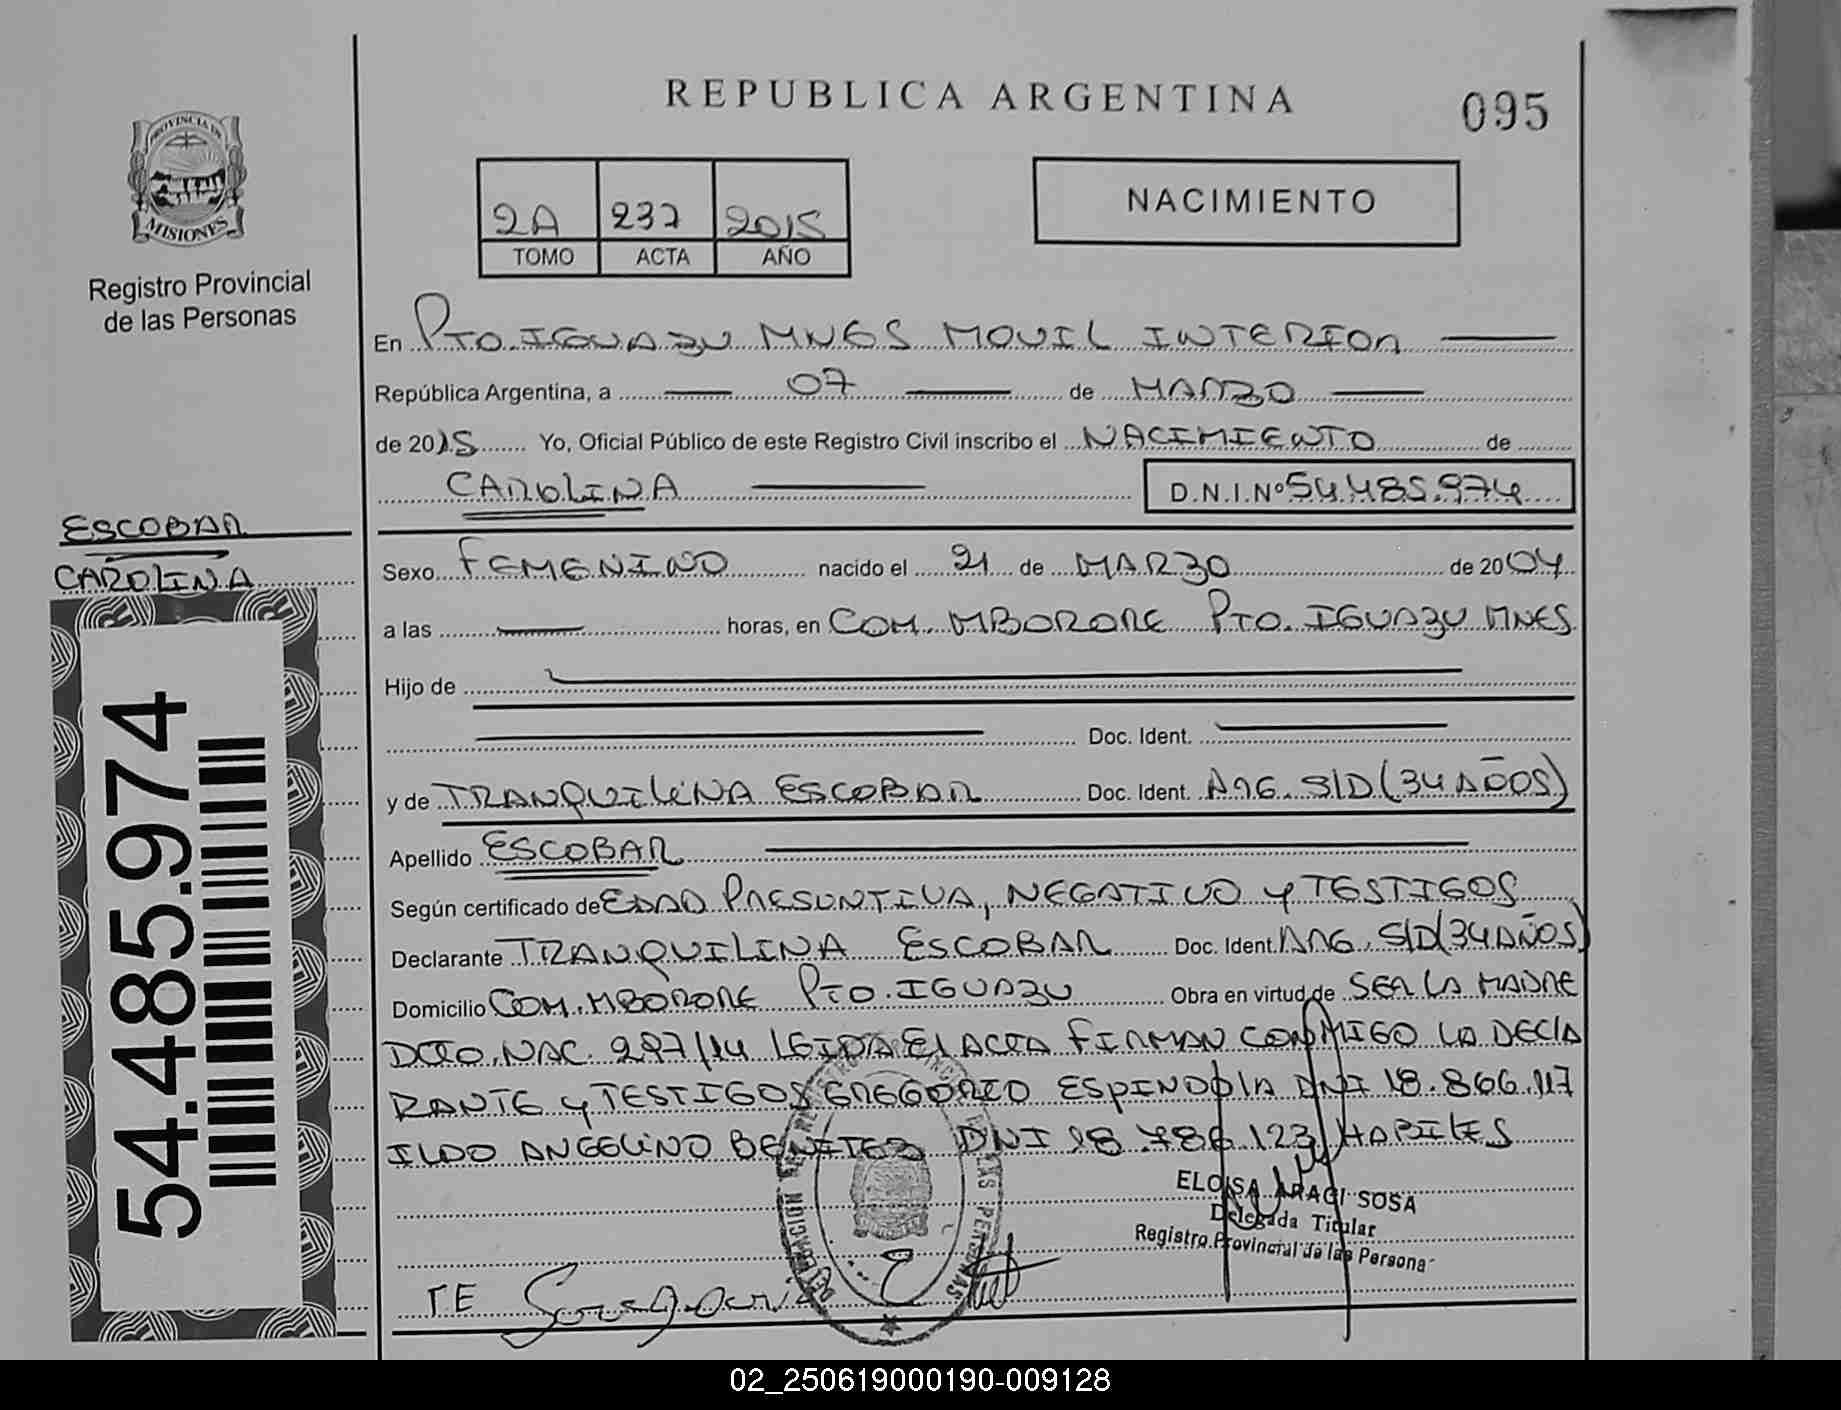 REPUBLICA ARGENTINA
095
PROVINCIA DE
MISIONES
Registro Provincial
de las Personas
2A 237 2015
TOMO ACTA AÑO
NACIMIENTO
En PTO. IGUAZU MNES MOVIL INTERIOR
República Argentina, a 07 de MARZO
de 2015 Yo, Oficial Público de este Registro Civil inscribo el NACIMIENTO de
CAROLINA D.N.I.Nº 54.485.974
ESCOBAR
CAROLINA
Sexo FEMENINO nacido el 21 de MARZO de 2004
a las horas, en COM. MBORORE PTO. IGUAZU MNES
Hijo de
Doc. Ident.
y de TRANQUILINA ESCOBAR Doc. Ident. ARG. S/D (34 AÑOS)
Apellido ESCOBAR
Según certificado de EDAD PRESUNTIVA, NEGATIVO Y TESTIGOS
Declarante TRANQUILINA ESCOBAR Doc. Ident. ARG. S/D (34 AÑOS)
Domicilio COM. MBORORE PTO. IGUAZU Obra en virtud de SER LA MADRE
DCTO. NAC. 297/14 LEIDA El ACTA FIRMAN CONMIGO LA DECLA
RANTE Y TESTIGOS GREGORIO ESPINDOLA DNI 18.866.117
ILDO ANGELINO BENITEZ DNI 18.786.123 HABILES
54.485.974
ELOISA ARACI SOSA
Delegada Titular
Registro Provincial de las Persona
TE
02_250619000190-009128